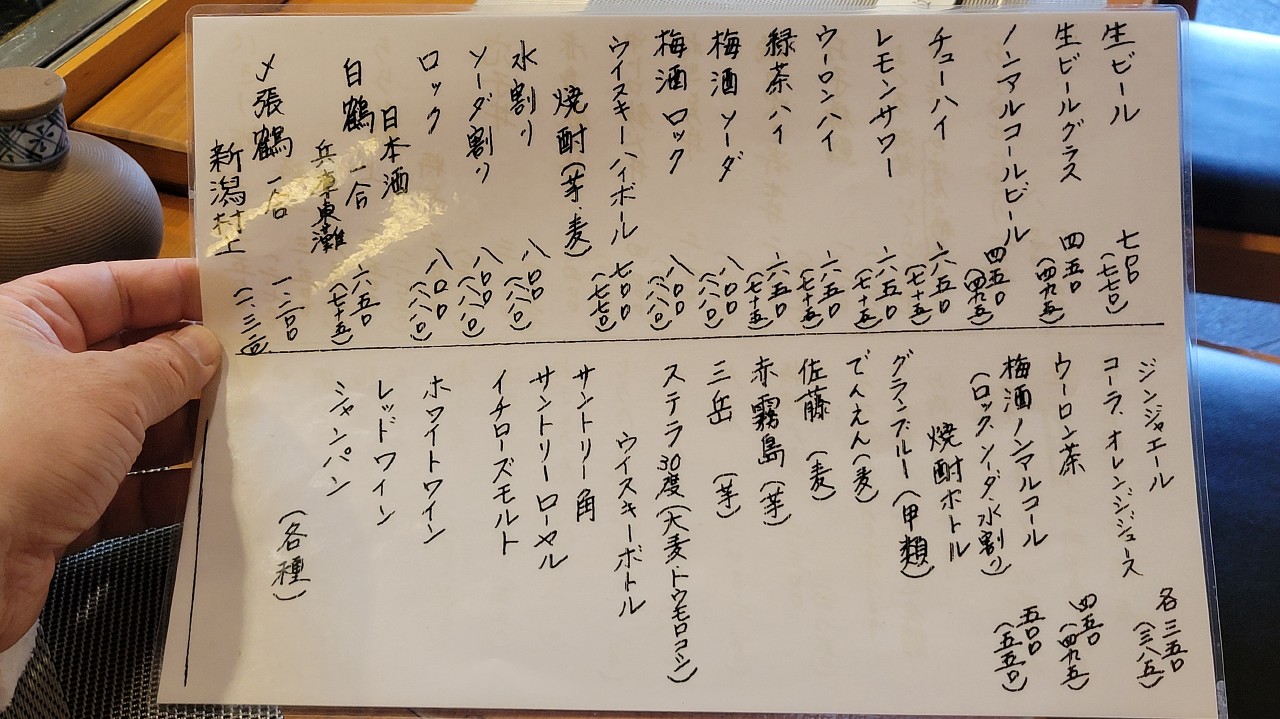 生ビール 七〇〇 (七七〇)
生ビールグラス 四五〇 (四九五)
ノンアルコールビール 四五〇 (四九五)
チューハイ 六五〇 (七一五)
レモンサワー 六五〇 (七一五)
ウーロンハイ 六五〇 (七一五)
緑茶ハイ 六五〇 (七一五)
梅酒 ソーダ 八〇〇 (八八〇)
梅酒 ロック 八〇〇 (八八〇)
ウイスキーハイボール 七〇〇 (七七〇)
焼酎(芋・麦)
水割り 八〇〇 (八八〇)
ソーダ割り 八〇〇 (八八〇)
ロック 八〇〇 (八八〇)
日本酒
白鶴 一合 六五〇 (七一五)
兵庫東灘
〆張鶴 一合 一、二〇〇 (一、三二〇)
新潟村上
ジンジャエール
コーラ、オレンジジュース 各三五〇 (三八五)
ウーロン茶 四五〇 (四九五)
梅酒ノンアルコール 五〇〇 (五五〇)
(ロック、ソーダ、水割り)
焼酎ボトル
グランブルー(甲類)
でんえん(麦)
佐藤 (麦)
赤霧島(芋)
三岳 (芋)
ステラ30度(大麦・トウモロコシ)
ウイスキーボトル
サントリー角
サントリーローヤル
イチローズモルト
ホワイトワイン
レッドワイン
シャンパン
(各種)